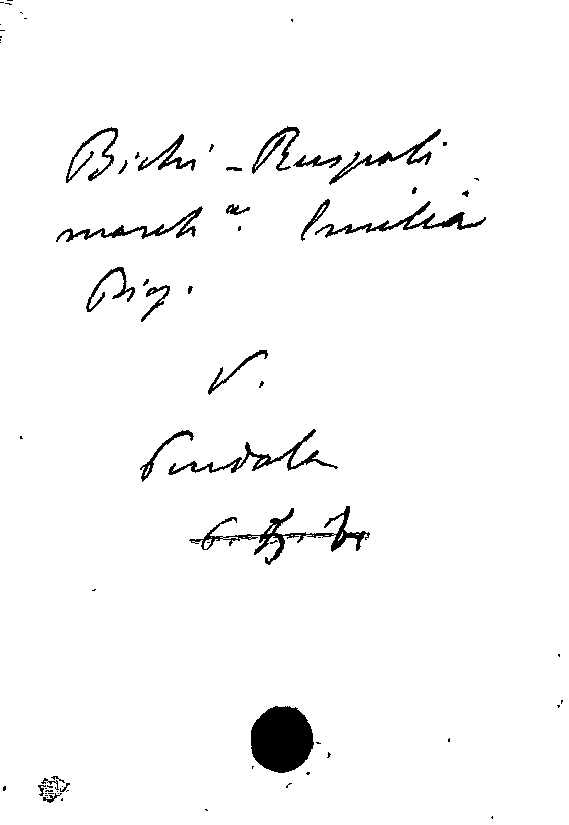 Bichi-Ruspoli
march.a Emilia
Big.
V.
Pendola